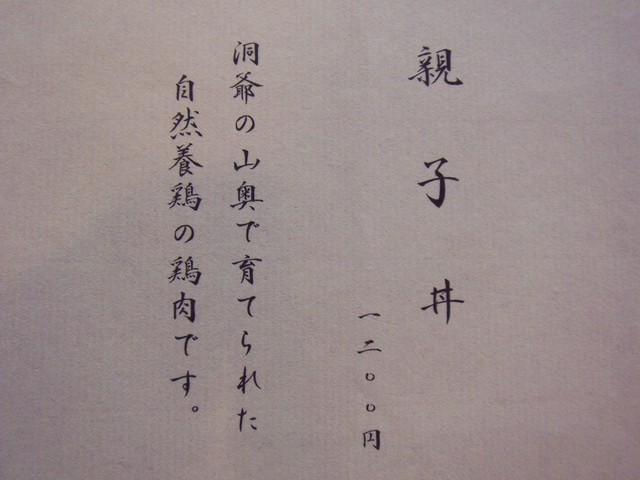 親子丼
一二〇〇円
洞爺の山奥で育てられた
自然養鶏の鶏肉です。